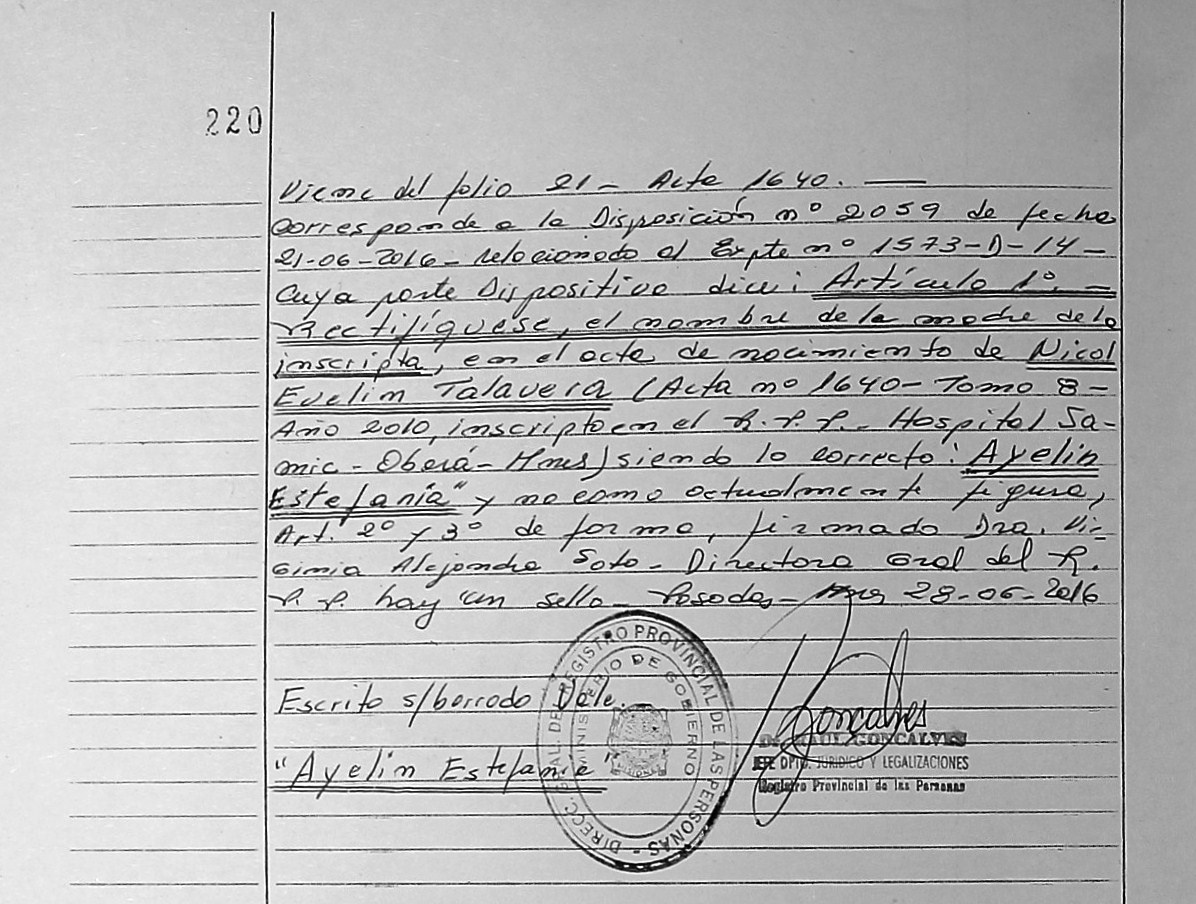 220
Viene del folio 21 - Acta 1640. ——
Corresponde a la Disposición nº 2059 de fecha
21-06-2016 - relacionado al Expte nº 1573-D-14 -
Cuya parte Dispositiva dice: Artículo 1º. -
Rectifíquese, el nombre de la madre de la
inscripta, en el acta de nacimiento de Nicol
Evelin Talavera (Acta nº 1640 - Tomo 8 -
Año 2010, inscripto en el R.P.P. - Hospital Sa-
mic - Oberá - Mnes) siendo lo correcto: "Ayelin
Estefanía" y no como actualmente figura,
Art. 2º y 3º de forma, firmado Dra. Vir-
ginia Alejandra Soto - Directora Gral del R.
P.P. hay un sello - Posadas - Mnes 28-06-2016
Escrito s/borrado Vale.
"Ayelin Estefanía"
DIRECC. GRAL. DEL REGISTRO PROVINCIAL DE LAS PERSONAS -
MINISTERIO DE GOBIERNO
MISIONES
Goncalves
Dr. RAUL GONCALVES
JEFE DPTO. JURIDICO Y LEGALIZACIONES
Registro Provincial de las Personas